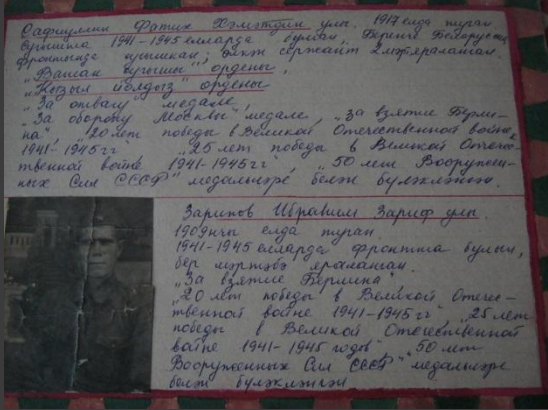 Сафиуллин Фатих Хәмәтдин улы. 1917 елда туган.
Сугышта 1941-1945 елларда булган, Беренче Белорус
фронтында сугышкан, өлкән сержант 2 мәт. яраланган.
„Ватан сугышы" ордены,
„Кызыл йолдыз" ордены
„За отвагу" медале,
„За оборону Москвы" медале, „за взятие Берли-
на", „20 лет победы в Великой Отечественной войне
1941-1945 гг" „25 лет победы в Великой Отече-
ственной войне 1941-1945 гг", „50 лет Вооружен-
ных Сил СССР" медальләре белән бүләкләнгән.
Зарипов Ибрагим Зариф улы.
1909нчы елда туган.
1941-1945 елларда фронтта булып,
бер мәртәбә яраланган.
„За взятие Берлина",
„20 лет победы в Великой Отече-
ственной войне 1941-1945 гг", „25 лет
победы в Великой Отечественной
войне 1941-1945 годов" „50 лет
Вооруженных Сил СССР" медальләре
белән бүләкләнгән